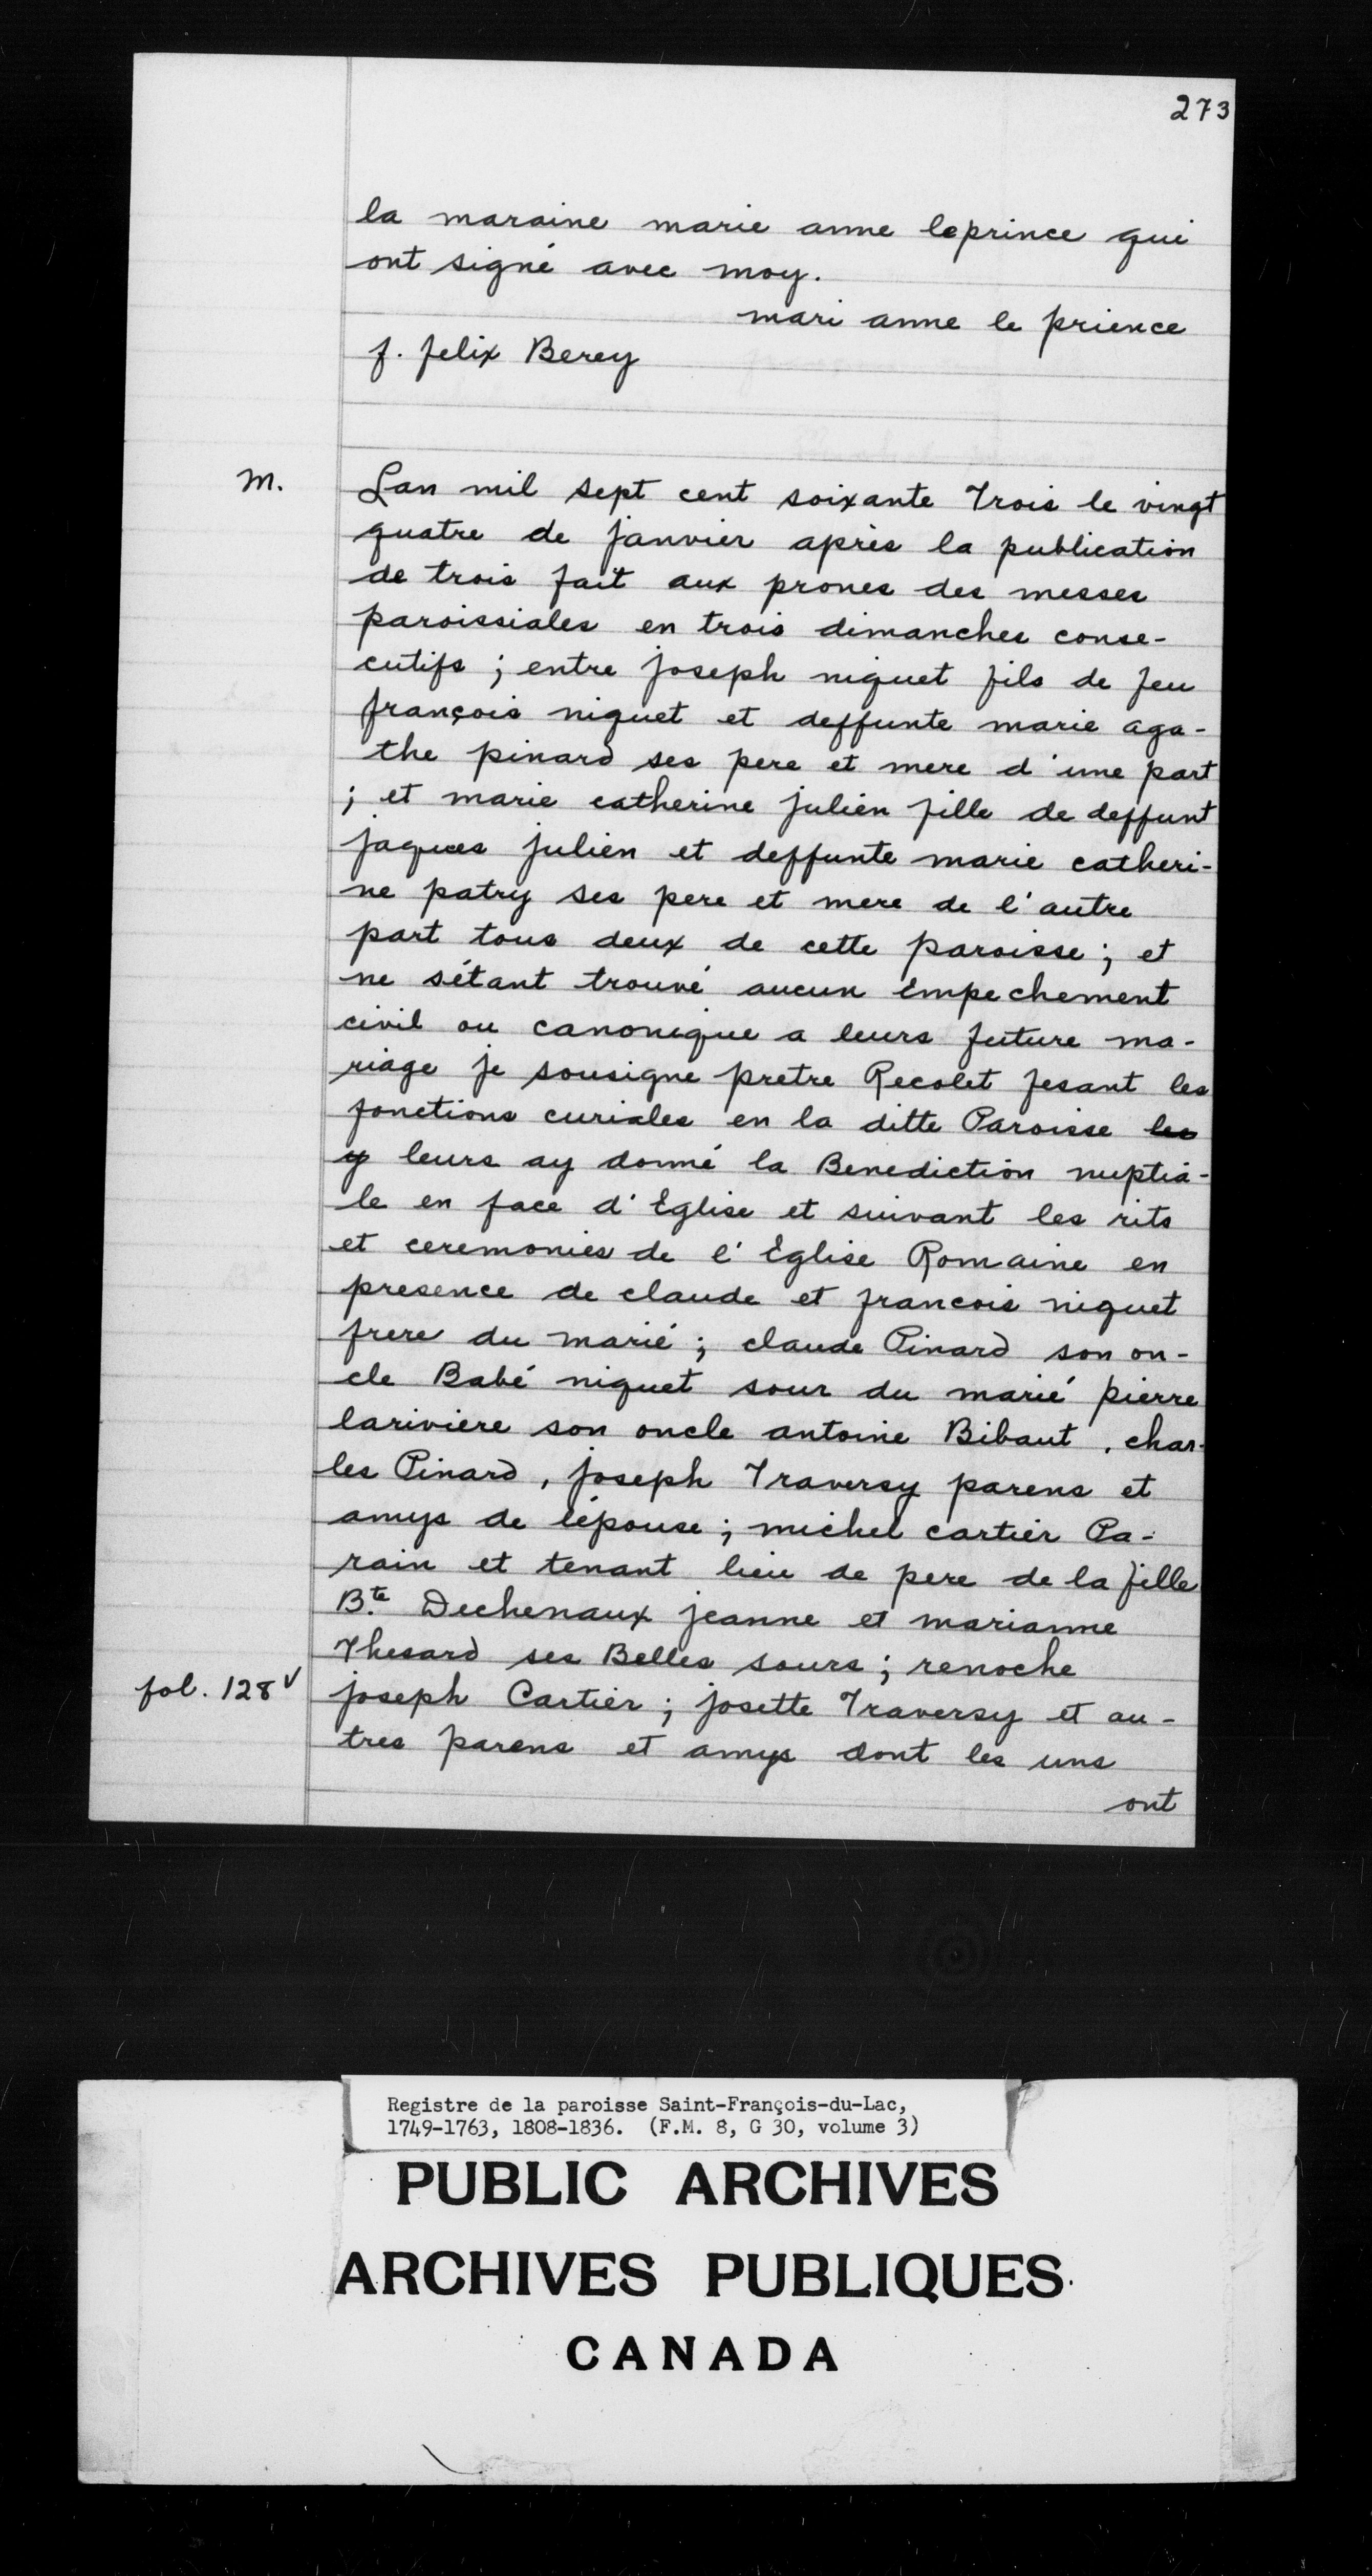 273
la maraine marie anne leprince qui
ont signé avec moy.
mari anne le prience
f. felix Berey
M.
Lan mil sept cent soixante Trois le vingt
quatre de janvier après la publication
de trois fait aux prones des messes
paroissiales en trois dimanches conse-
cutifs ; entre joseph niquet fils de feu
françois niquet et deffunte marie aga-
the pinard ses pere et mere d'une part
; et marie catherine julien fille de deffunt
jaques julien et deffunte marie catheri-
ne patry ses pere et mere de l'autre
part tous deux de cette paroisse ; et
ne sétant trouvé aucun empechement
civil ou canonique a leurs future ma-
riage je sousigne pretre Recolet fesant les
fonctions curiales en la ditte Paroisse les
y leurs ay donné la Benediction nuptia-
le en face d'Eglise et suivant les rits
et ceremonies de l'Eglise Romaine en
presence de claude et francois niquet
frere du marié ; claude Pinard son on-
cle Babé niquet sour du marié pierre
lariviere son oncle antoine Bibaut, char-
les Pinard, joseph Traversy parens et
amys de lépouse ; michel cartier Pa-
rain et tenant lieu de pere de la fille
B.te Dechenaux jeanne et marianne
Thesard ses Belles sours ; renoche
fol. 128v
joseph Cartier ; josette Traversy et au-
tres parens et amys dont les uns
ont
Registre de la paroisse Saint-François-du-Lac,
1749-1763, 1808-1836. (F.M. 8, G 30, volume 3)
PUBLIC ARCHIVES
ARCHIVES PUBLIQUES
CANADA